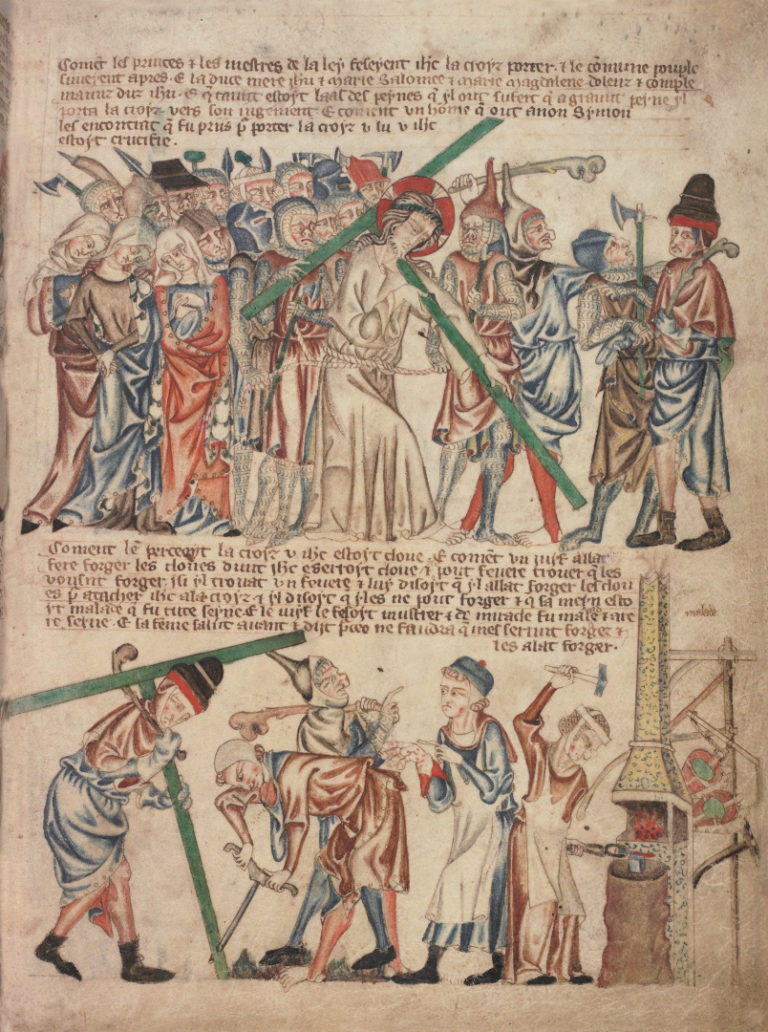 Coment les princes & les mestres de la ley feseyent ihc la croyz porter. & le comune pouple
siwerent apres. E la duce mere ihu & Marie Salomee & Marie Magdalene doleur & comple
maunt dut ihu. E q taunt estoyt laas des peynes q yl out sufert q a graunt peyne yl
porta la croyz vers son iugement. E coment vn home q out a non Symon
les encontrat q fu prus p porter la croyz v lu v ihc
estoyt crucifie.
Coment len la croyz v ihc estoyt cloue. E comēt vn juyf allat
fere forger les cloues dunt ihc cloue & pout feuere trouer q les
forger. isi yl trouat vn feuere & luy disoyt q yl allat forger les clou
es p atacher ihc a la croyz & yl disoyt q yl es ne pout forger & q sa meyn esto
yt malade q fu tute seyne. E le juyf le fesoyt mustrer & miracle fu male &
seyne. E sa feme salut auant & dyt ne faudra q serunt forget &
les alat forger.
malade